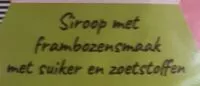 Siroop met
frambozensmaak
met suiker en zoetstoffen